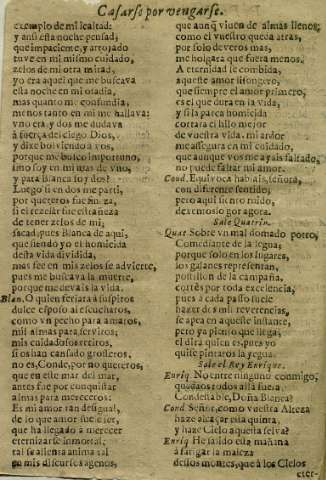 Casarse por vengarse.
exemplo de mi lealtad:
y ansi esta noche pensad;
que impaciente, y arrojado
tuve en mi mismo cuidado,
zelos de mi otra mitad,
yo era aquel que me buscava
esta noche en mi osadia,
mas quanto me confundia,
menos tanto en mi me hallava:
vno era, y dos me dudava
à fuerça del ciego Dios,
y dixe bolviendo à vos,
porque me busco importuno,
si no soy en mi mas de vno,
y para Blanca soy dos?
Luego si en dos me parti,
por quereros fue fineza,
si el rezelar fue estrañeza
de tener zelos de mi;
sacad, pues Blanca de aqui,
que siendo yo el homicida
desta vida dividida,
mas fee en mis zelos se advierte,
pues me buscava la muerte,
porque me devais la vida.
Blan. O quien feriara à suspiros
dulce esposo al escucharos,
como vn pecho para amaros,
mil almas para serviros;
mis cuidadosos retiros,
si os han cansado groseros,
no es, Conde, por no quereros,
que en este mar del mar,
antes fue por conquistar
almas para mereceros:
Es mi amor tan desigual,
de lo que amor suele ser,
que ha llegado à merecer
eternizarse inmortal;
tal se alienta anima tal
en mis discursos agenos,
que aunq viven de almas llenos;
como el vuestro queda atras,
por solo deveros mas,
me holgara que fuera menos.
A eternidad le combida,
aqueste amor lisongero,
que siempre el amor primero,
es el que dura en la vida;
y si la parca homicida
cortara el hilo mejor
de vuestra vida, mi ardor
me assegura en mi cuidado,
que aunque vos me ayais faltado,
no puede faltar mi amor.
Cond. Equivoca hablais, señora,
con diferente sentido;
pero aqui siento ruido,
dexemoslo por agora.
Sale Quatrin.
Quat Sobre vn mal domado potro,
Comediante de la legua;
porque solo en los lugares,
los galanes representan,
postillon de la campaña,
cortés por toda excelencia;
pues à cada passo suele
hazer dos mil reverencias,
se apea en aqueste instante,
pero ya pienso que llega;
el dirà quien es, pues yo
quise pintaros la yegua.
Sale el Rey Enrique.
Enriq. No entre ninguno conmigo;
quedaos todos allà fuera,
Condestable, Doña Blanca?
Cond Señor, como vuestra Alteza
haze alcaçar esta quinta,
y haze Cielo aquesta selva?
Enriq He salido esta mañana
à fatigar la maleza
destos montes, que à los Cielos
eter-